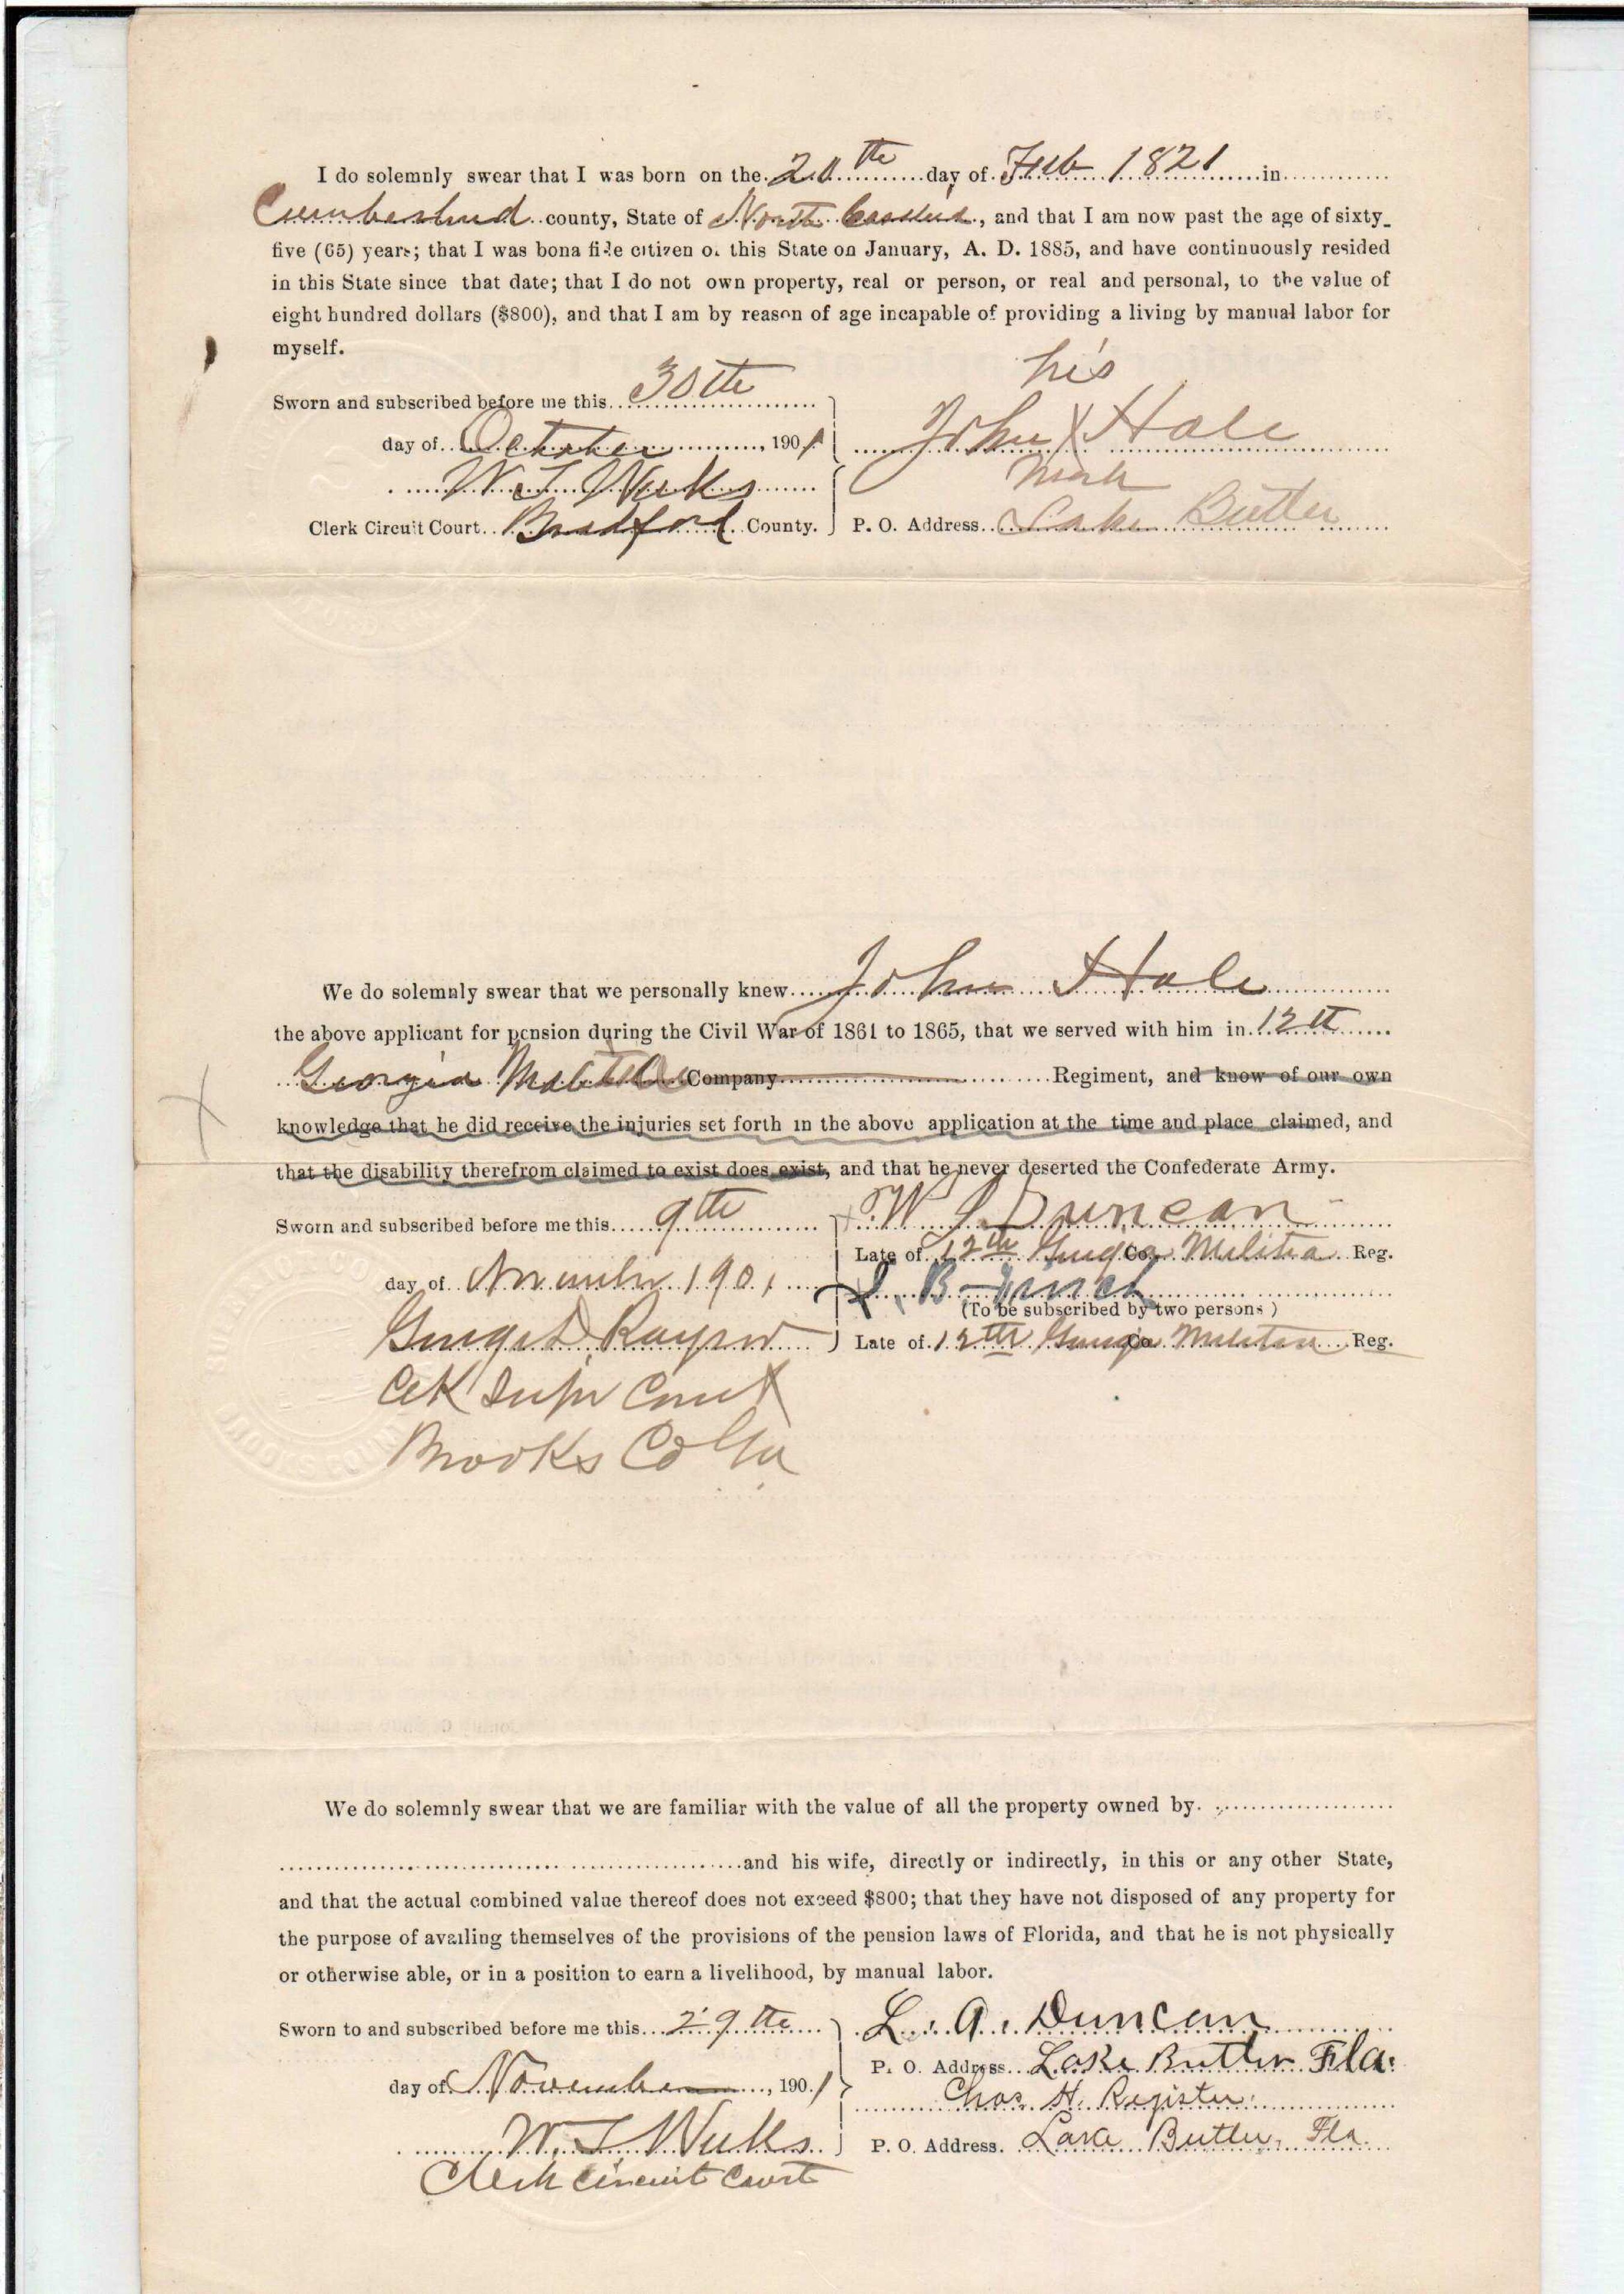 I do solemnly swear that I was born on the 20th day of Feb 1821 in
Cumberland county, State of North Carolina, and that I am now past the age of sixty_
five (65) years; that I was bona fide citizen of this State on January, A. D. 1885, and have continuously resided
in this State since that date; that I do not own property, real or person, or real and personal, to the value of
eight hundred dollars ($800), and that I am by reason of age incapable of providing a living by manual labor for
myself.
his
Sworn and subscribed before me this 30th
day of October, 1901 John X Hale
mark
W. T. Weeks
Clerk Circuit Court Bradford County. P. O. Address Lake Butler
We do solemnly swear that we personally knew John Hale
the above applicant for pension during the Civil War of 1861 to 1865, that we served with him in 12th
Georgia Company Regiment, and know of our own
knowledge that he did receive the injuries set forth in the above application at the time and place claimed, and
that the disability therefrom claimed to exist does exist, and that he never deserted the Confederate Army.
Sworn and subscribed before me this 9th W J Duncan
Late of 12th Georgia Co. Militia Reg.
day of November 1901 B
(To be subscribed by two persons)
George Late of 12th Georgia Co. Militia Reg.
Clk Supr Court
Brooks Co Ga
BROOKS COUN
We do solemnly swear that we are familiar with the value of all the property owned by
and his wife, directly or indirectly, in this or any other State,
and that the actual combined value thereof does not exceed $800; that they have not disposed of any property for
the purpose of availing themselves of the provisions of the pension laws of Florida, and that he is not physically
or otherwise able, or in a position to earn a livelihood, by manual labor.
Sworn to and subscribed before me this 29th L. A. Duncan
P. O. Address Lake Butler Fla.
day of November, 1901 Chas. H. Register
W. T. Weeks P. O. Address. Lake Butler, Fla.
Clerk Circuit Court